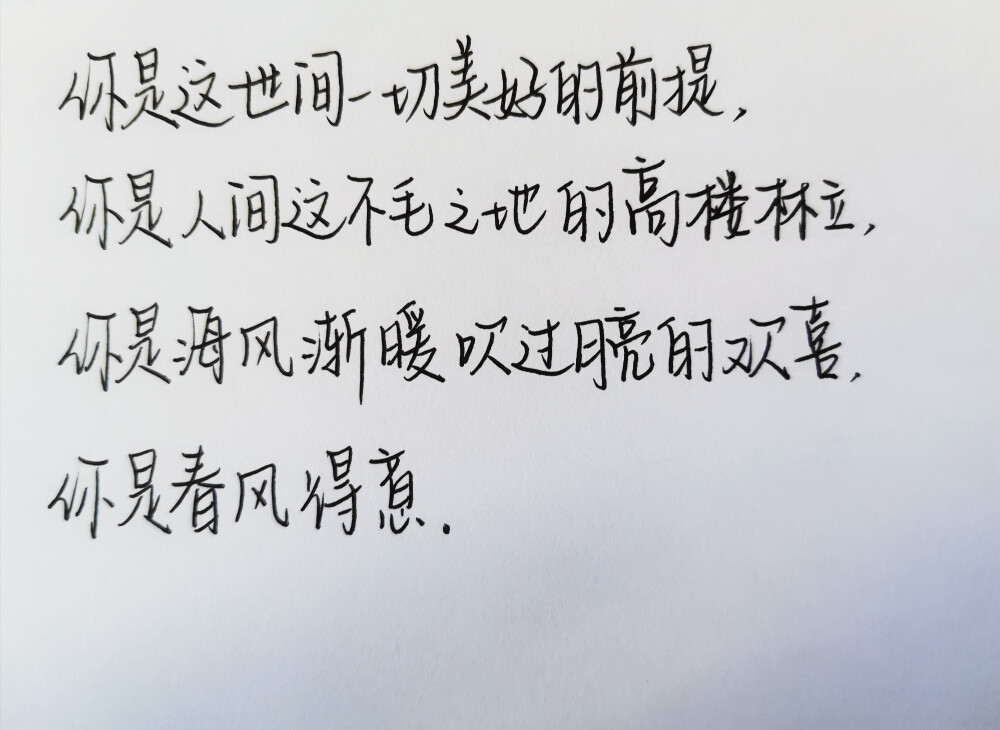 你是这世间一切美好的前提，
你是人间这不毛之地的高楼林立，
你是海风渐暖吹过月亮的欢喜，
你是春风得意.